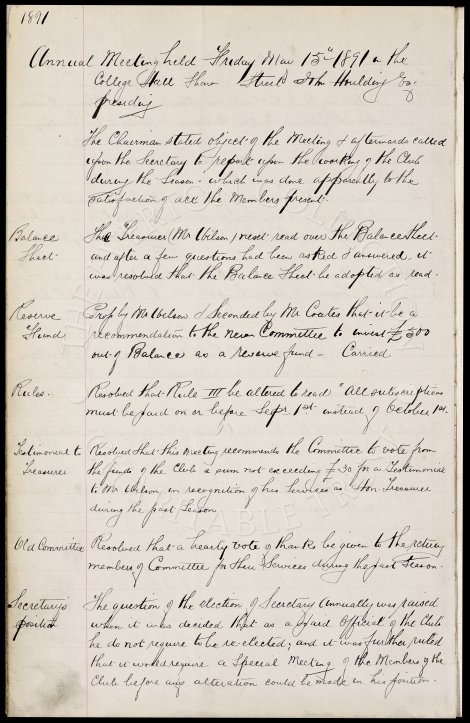 1891
Annual Meeting held Friday May 15th 1891 in the
College Hall Shaw Street John Houlding Esq
presiding
The Chairman stated object of the Meeting & afterwards called
upon the Secretary to report upon the working of the Club
during the Season. which was done apparently to the
satisfaction of all the Members present.
Balance Sheet
The Treasurer (Mr Wilson) next read over the Balance Sheet
and after a few questions had been asked & answered, it
was resolved that the Balance Sheet be adopted as read.
Reserve Fund
Prop by Mr Wilson & Seconded by Mr Coates that it be a
recommendation to the new Committee to invest £500
out of Balance as a reserve fund - Carried
Rules.
Resolved that Rule III be altered to read "All subscriptions
must be paid on or before Sepr 1st instead of October 1st.
Testimonial to Treasurer
Resolved that this Meeting recommends the Committee to vote from
the funds of the Club a sum not exceeding £30 for a Testimonial
to Mr Wilson in recognition of his Services as Hon Treasurer
during the past Season
Old Committee
Resolved that a hearty vote of thanks be given to the retiring
members of Committee for their Services during the past Season.
Secretary's position
The question of the election of Secretary Annually was raised
when it was decided that as a paid Official of the Club
he do not require to be re-elected; and it was further ruled
that it would require a Special Meeting of the Members of the
Club before any alteration could be made in his position.